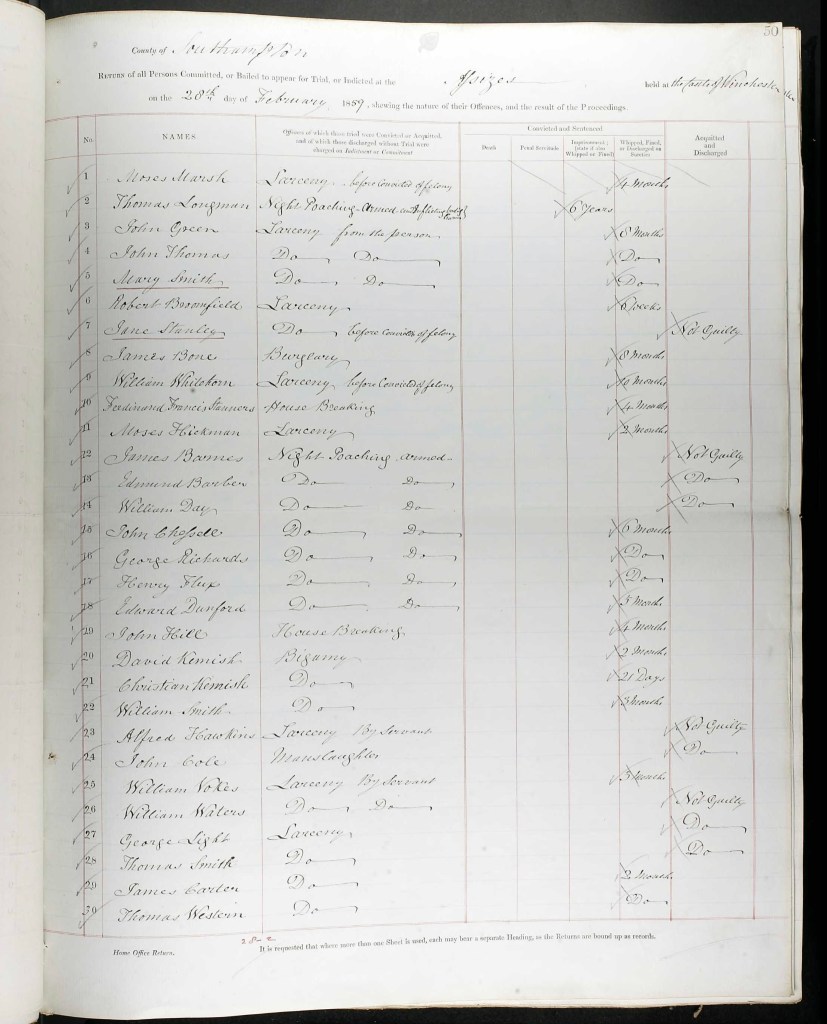 50
County of Southampton
Return of all Persons Committed, or Bailed to appear for Trial, or Indicted at the Assizes held at the Castle of Winchester
on the 28th day of February 1859, shewing the nature of their Offences, and the result of the Proceedings.
No. NAMES. Offences of which those tried were Convicted or Acquitted, and of which those discharged without Trial were charged on Indictment or Commitment Convicted and Sentenced Acquitted and Discharged
Death Penal Servitude Imprisonment; (state if also Whipped or Fined) Whipped, Fined, or Discharged on Sureties
1 Moses Marsh Larceny before Convicted of felony 4 Months
2 Thomas Longman Night Poaching Armed and inflicting 6 Years
3 John Green Larceny from the person 8 Months
4 John Thomas Do Do Do
5 Mary Smith Do Do Do
6 Robert Broomfield Larceny 6 Weeks
7 Jane Stanley Do before Convicted of felony Not Guilty
8 James Bone Burglary 8 Months
9 William Whitehorn Larceny before Convicted of felony Months
10 Ferdinand Francis Stanners House Breaking 4 Months
11 Moses Hickman Larceny 2 Months
12 James Barnes Night Poaching Armed Not Guilty
13 Edmund Barber Do Do Do
14 William Day Do Do Do
15 John Chessell Do Do 6 Months
16 George Richards Do Do Do
17 Henry Flux Do Do Do
18 Edward Dunford Do Do 5 Months
19 John Hill House Breaking 4 Months
20 David Kemish Bigamy 2 Months
21 Christian Kemish Do 21 Days
22 William Smith Do 3 Months
23 Alfred Hawkins Larceny By Servant Not Guilty
24 John Cole Manslaughter Do
25 William Vokes Larceny By Servant 3 Months
26 William Waters Do Do Not Guilty
27 George Light Larceny Do
28 Thomas Smith Do Do
29 James Carter Do 2 Months
30 Thomas Western Do Do
It is requested that where more than one Sheet is used, each may bear a separate Heading, as the Returns are bound up as records.
Home Office Return.